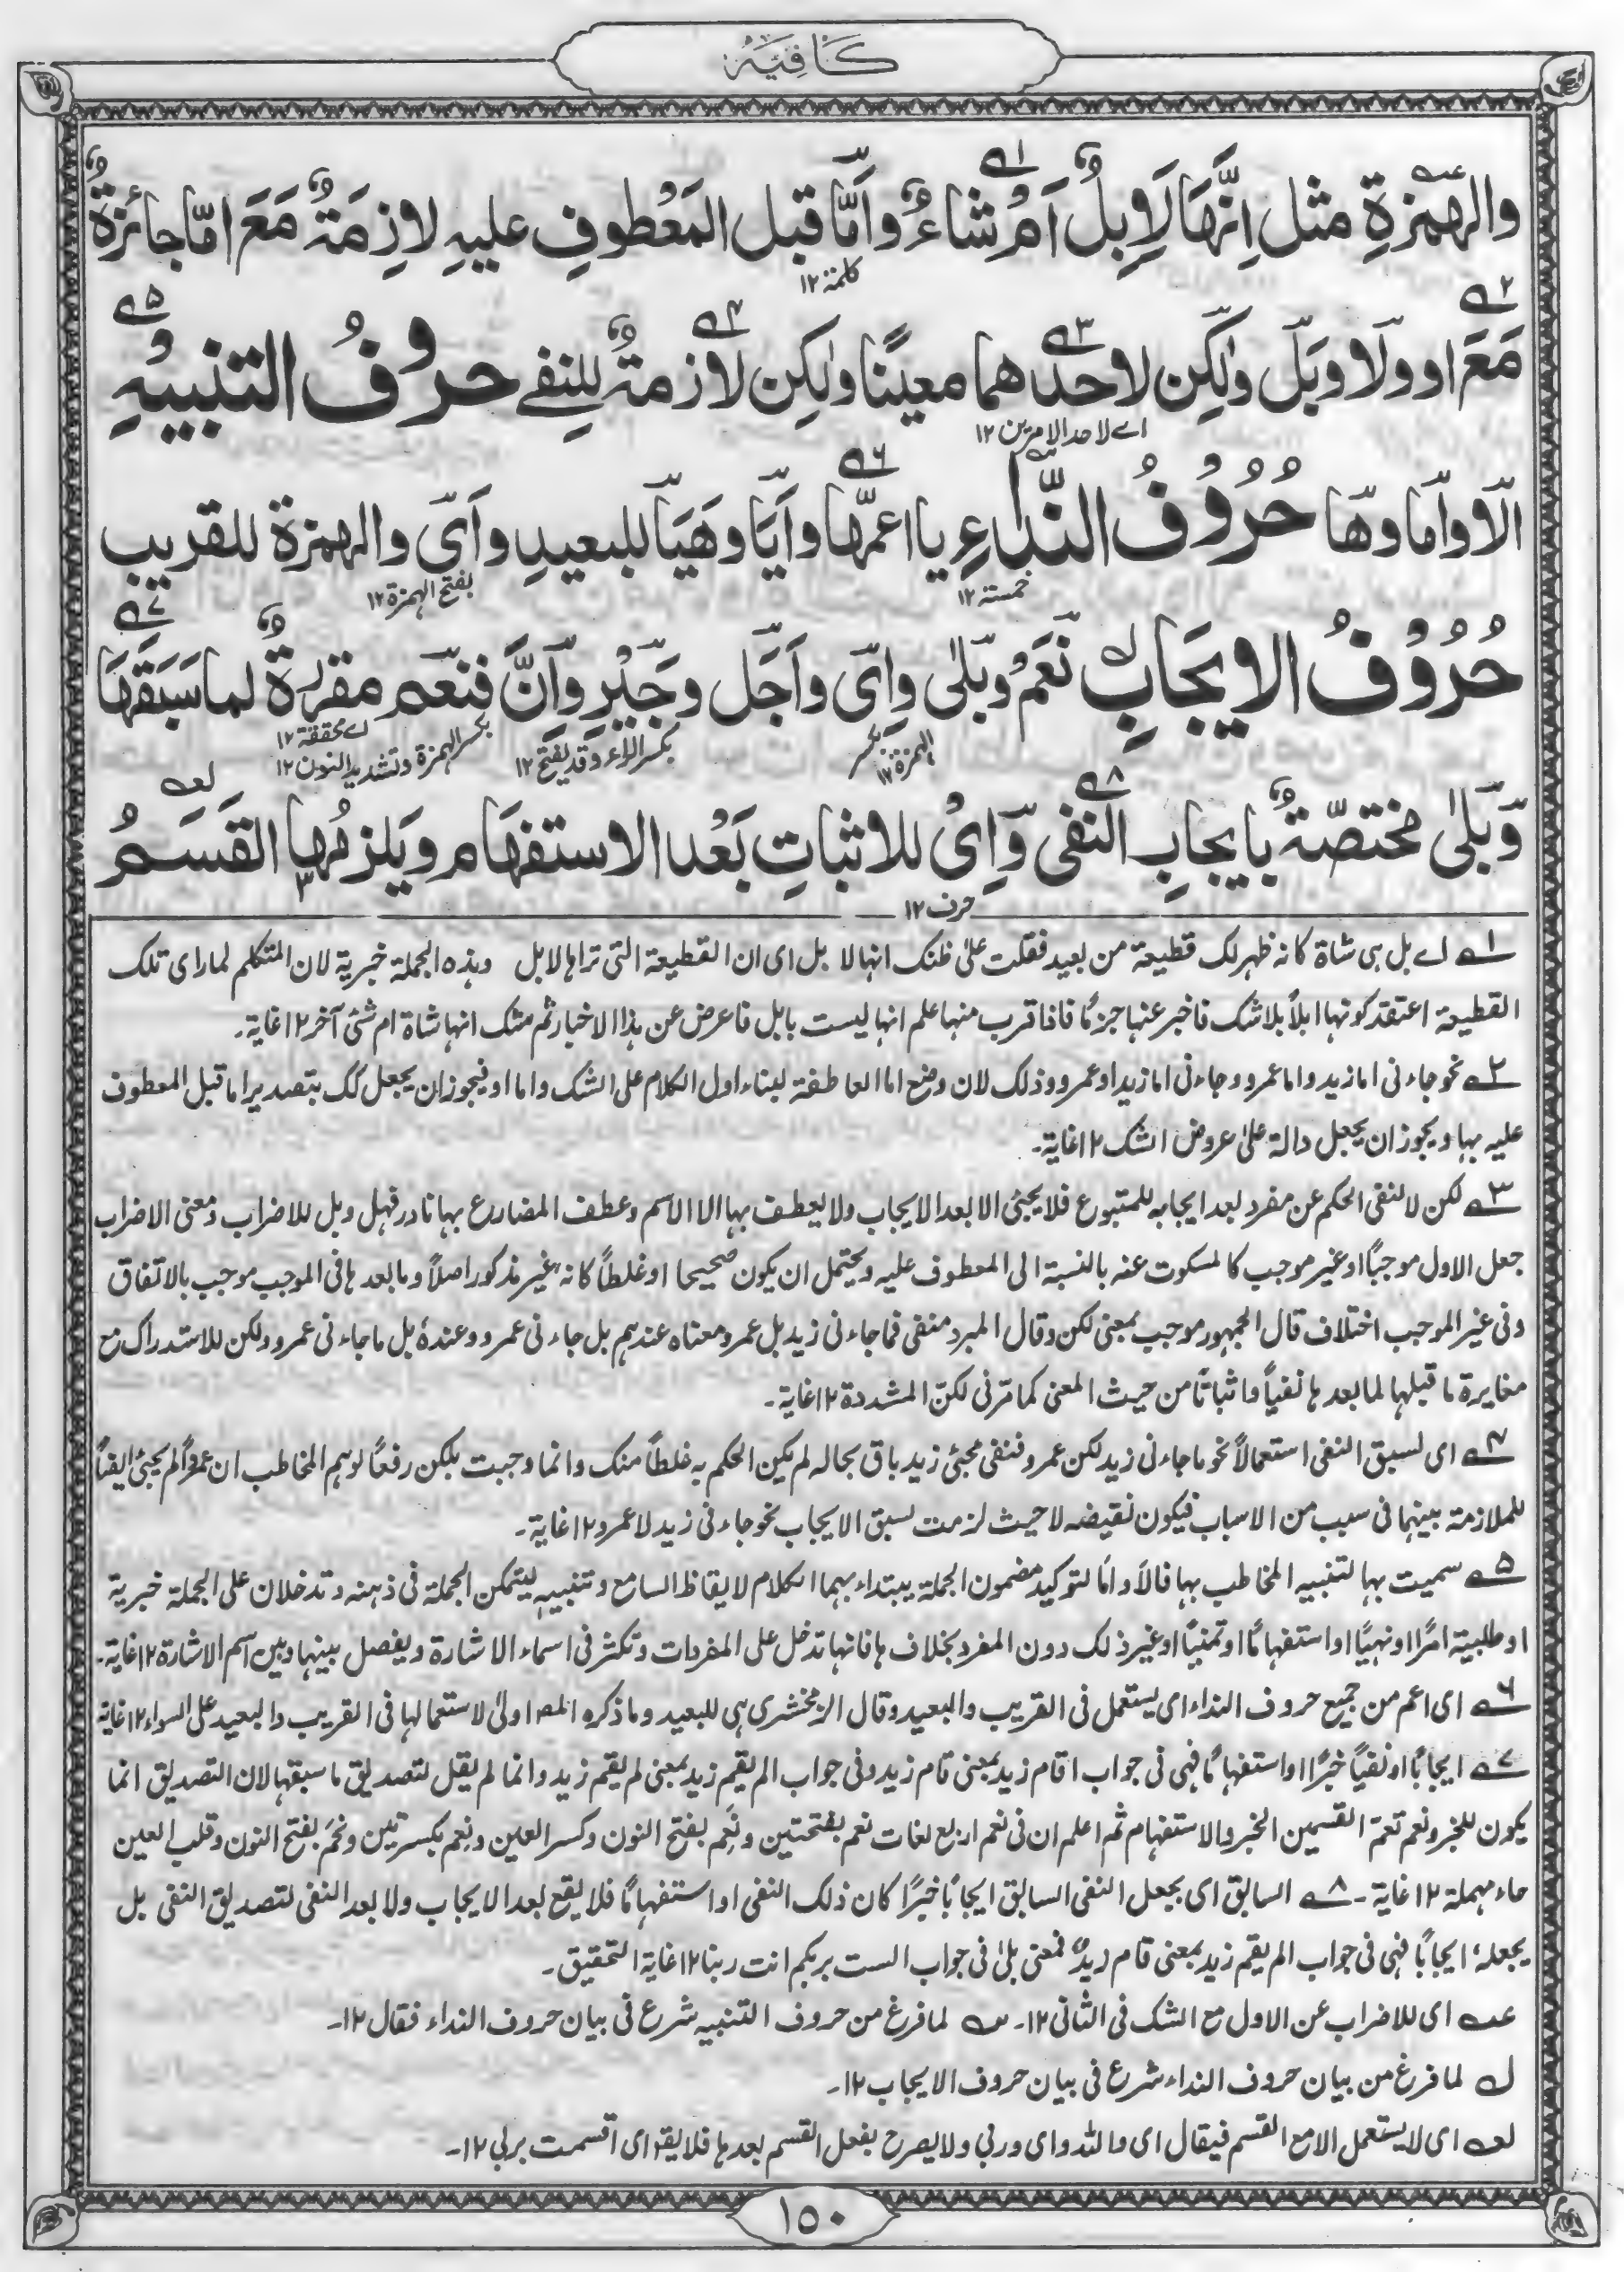 كَافِيَه
والهمزةِ مثل اِنَّهَا لَاِبِلٌ اَمْ شاءٌ واَمَّا قبل المَعْطوفِ عليهِ لازِمَةٌ مَعَ امّا جائزةٌ
كلمة ١٢
مَعَ او ولَا وبَلْ ولٰكِن لاحدهما معينًا ولٰكِن لازمةٌ للنفے حروفُ التنبيهِ
اے لاحد الامرين ١٢
الَا واَمَا وهَا حُرُوْفُ النّداءِ يا اعمّها واَيَا وهَيَا للبعيدِ واَىْ والهمزة للقريب
خمسة ١٢ بفتح الهمزة ١٢
حُرُوْفُ الايجَابِ نَعَمْ وبَلٰى واِىْ واَجَل وجَيْرِ واِنَّ فنعَم مقرّرةٌ لما سَبَقَهَا
بكسر الهمزة ١٢ بكسر الراء وقد يفتح ١٢ بكسر الهمزة وتشديد النون ١٢ اے محققة ١٢
وَبَلٰى مختصّةٌ بايجابِ النفى وَاِىْ للاثباتِ بَعْد الاستفهام ويَلزمُها القَسَمُ
حرف ١٢
١ اے بل هى شاة كانه ظهر لك قطيعة من بعيد فقلت علىٰ ظنك انها لابل اى ان القطيعة التى تراها لابل وهذه الجملة خبرية لان المتكلم لما راى تلك
القطيعة اعتقد كونها ابلاً بلاشك فاخبر عنها جزمًا فاذا قرب منها علم انها ليست بابل فاعرض عن هذا الاخبار ثم شك انها شاة ام شئ آخر ١٢ غاية۔
٢ نحو جاءنى اما زيد واما عمرو وجاءنى اما زيد او عمرو وذلك لان وضع اما العاطفة لبناء اول الكلام على الشك واما او فيجوز ان يجعل كك بتصدير اما قبل المعطوف
عليه بها ويجوز ان يجعل دالة علىٰ عروض الشك ١٢ غاية۔
٣ لكن لا لنفى الحكم عن مفرد بعد ايجابه للمتبوع فلا يجئ الا بعد الايجاب ولا يعطف بها الا الاسم وعطف المضارع بها نادر فهل وبل للاضراب ومعنى الاضراب
جعل الاول موجبًا او غير موجب كالمسكوت عنه بالنسبة الى المعطوف عليه ويحتمل ان يكون صحيحا او غلطاً كانه غير مذكور اصلاً وما بعدها فى الموجب موجب بالاتفاق
وفى غير الموجب اختلاف قال الجمهور موجب بمعنى لكن وقال المبرد منفى فما جاءنى زيد بل عمرو معناه عندهم بل جاءنى عمرو وعندهٗ بل ما جاءنى عمرو ولكن للاستدراك مع
مغايرة ما قبلها لما بعدها نفياً واثباتاً من حيث المعنى كما مرّ فى لكنّ المشددة ١٢ غاية۔
٤ اى لسبق النفى استعمالاً نحو ما جاءنى زيد لكن عمرو فنفى مجئ زيد باق بحاله لم يكن الحكم به غلطاً منك وانما وجبت بلكن رفعاً لوهم المخاطب ان عمرواً لم يجئ ايضاً
للملازمة بينهما فى سبب من الاسباب فيكون نقيضه لا حيث لزمت لسبق الايجاب نحو جاءنى زيد لا عمرو ١٢ غاية۔
٥ سميت بها لتنبيه المخاطب بها فالاَ واَما لتوكيد مضمون الجملة يبتداء بهما الكلام لايقاظ السامع وتنبيهه ليتمكن الجملة فى ذهنه وتدخلان على الجملة خبرية
او طلبية امرًا او نهيًا او استفهامًا او تمنيًا او غير ذلك دون المفرد بخلاف ها فانها تدخل على المفردات وتكثر فى اسماء الاشارة ويفصل بينها وبين اسم الاشارة ١٢ غاية۔
٦ اى اعم من جميع حروف النداء اى يستعمل فى القريب والبعيد وقال الزمخشرى هى للبعيد وما ذكره المصـ اولىٰ لاستعمالها فى القريب والبعيد على السواء ١٢ غاية
٧ ايجابًا او نفياً خبرًا او استفهامًا فهى فى جواب اقام زيد بمعنى قام زيد وفى جواب الم يقم زيد بمعنى لم يقم زيد وانما لم يقل لتصديق ما سبقها لان التصديق انما
يكون للخبر ونعم تعمّ القسمين الخبر والاستفهام ثم اعلم ان فى نعم اربع لغات نعم بفتحتين ونَعِم بفتح النون وكسر العين ونِعِم بكسرتين ونَحَم بفتح النون وقلب العين
حاء مهملة ١٢ غاية۔ ٨ السابق اى يجعل النفى السابق ايجابًا خبرًا كان ذلك النفى او استفهامًا فلا يقع بعد الايجاب ولا بعد النفى لتصديق النفى بل
يجعلهٗ ايجابًا فهى فى جواب الم يقم زيد بمعنى قام زيد فمعنى بلىٰ فى جواب الست بربكم انت ربنا ١٢ غاية التحقيق۔
عـه اى للاضراب عن الاول مع الشك فى الثانى ١٢۔ سـه لما فرغ من حروف التنبيه شرع فى بيان حروف النداء فقال ١٢۔
لـه لما فرغ من بيان حروف النداء شرع فى بيان حروف الايجاب ١٢۔
لعـه اى لا يستعمل الا مع القسم فيقال اى والله واى وربى ولا يصرح بفعل القسم بعدها فلا يقؒ اى اقسمت بربى ١٢۔
١٥٠